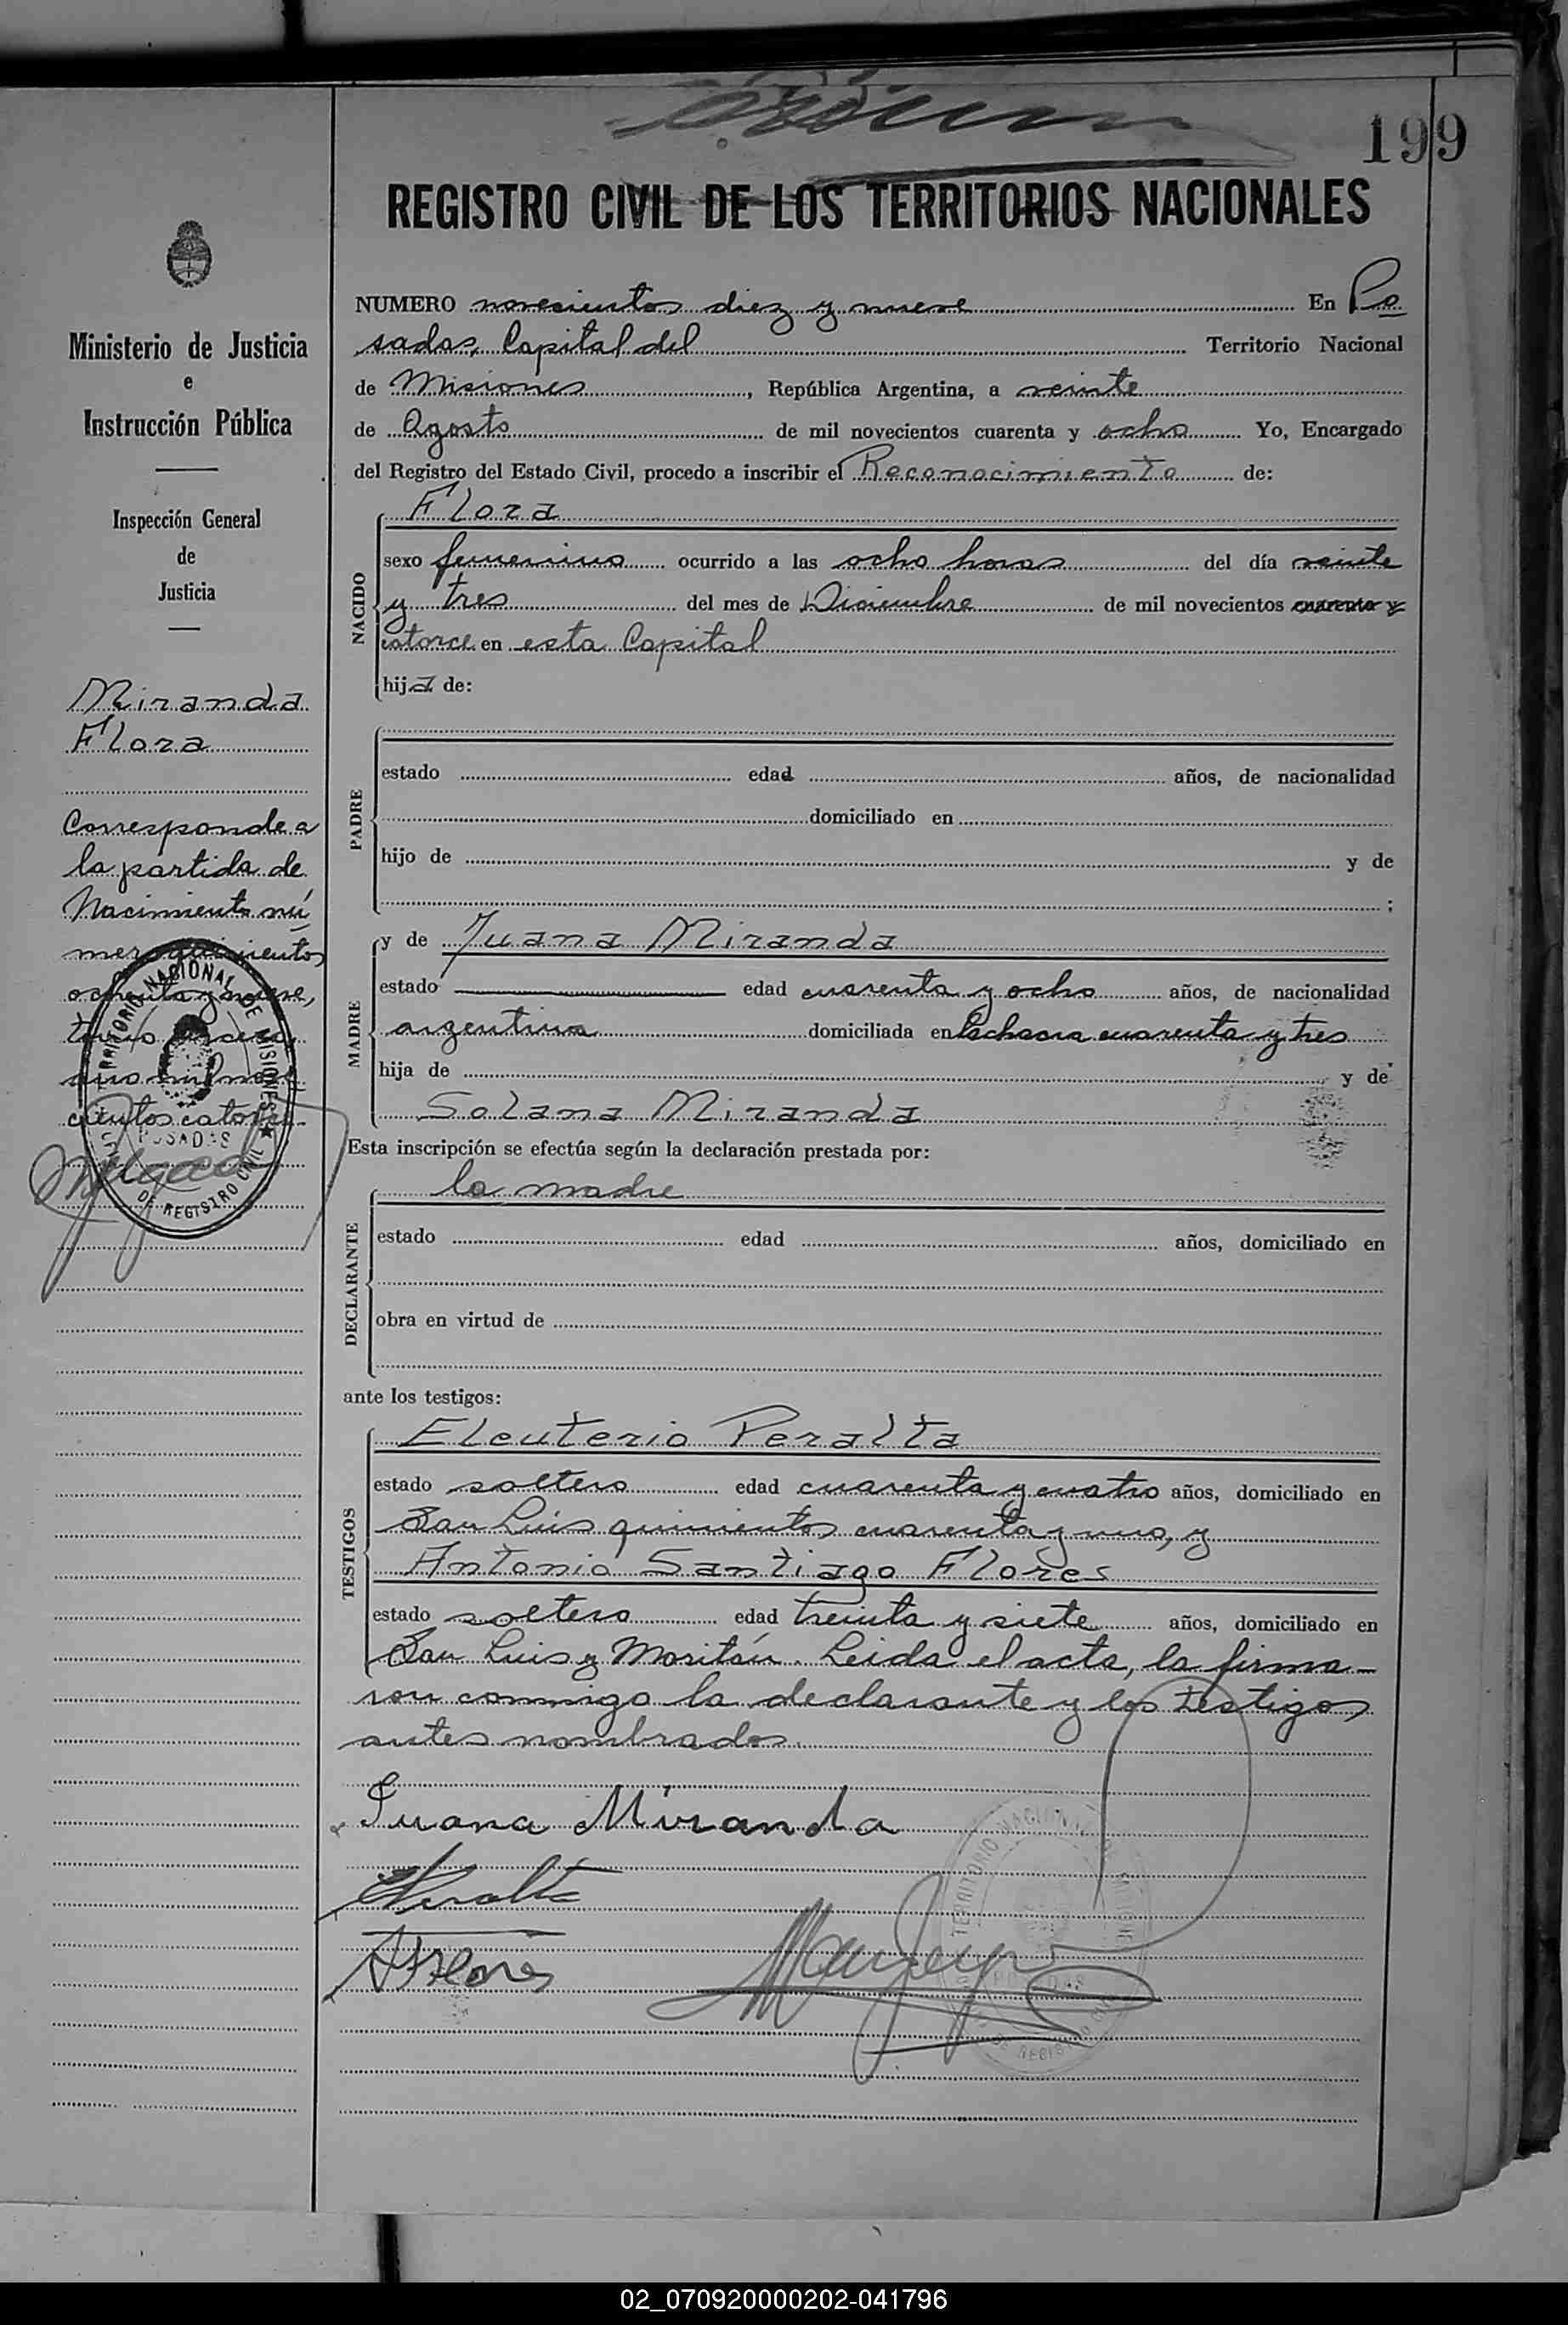 199
REGISTRO CIVIL DE LOS TERRITORIOS NACIONALES
Ministerio de Justicia
e
Instrucción Pública
Inspección General
de
Justicia
Miranda
Flora
Corresponde a
la partida de
Nacimiento nú
mero quinientos
ochenta y nueve,
tomo
año mil nove
cientos catorce.
TERRITORIO NACIONAL DE MISIONES
POSADAS
DE REGISTRO CIVIL
NUMERO novecientos diez y nueve En Po
sadas, Capital del Territorio Nacional
de Misiones, República Argentina, a veinte
de Agosto de mil novecientos cuarenta y ocho Yo, Encargado
del Registro del Estado Civil, procedo a inscribir el Reconocimiento de:
NACIDO
Flora
sexo femenino ocurrido a las ocho horas del día veinte
y tres del mes de Diciembre de mil novecientos cuarenta y
catorce en esta Capital
hija de:
PADRE
estado edad años, de nacionalidad
domiciliado en
hijo de y de
;
MADRE
y de Juana Miranda
estado edad cuarenta y ocho años, de nacionalidad
argentina domiciliada en la chacra cuarenta y tres
hija de y de
Solana Miranda
Esta inscripción se efectúa según la declaración prestada por:
DECLARANTE
la madre
estado edad años, domiciliado en
obra en virtud de
ante los testigos:
TESTIGOS
Eleuterio Peralta
estado soltero edad cuarenta y cuatro años, domiciliado en
San Luis quinientos cuarenta y uno, y
Antonio Santiago Flores
estado soltero edad treinta y siete años, domiciliado en
San Luis y Moritán. Leida el acta, la firma-
ron conmigo la declarante y los testigos
antes nombrados.
Juana Miranda
EPeralta
AFlores
TERRITORIO NACIONAL DE MISIONES
POSADAS
DE REGISTRO CIVIL
02_070920000202-041796